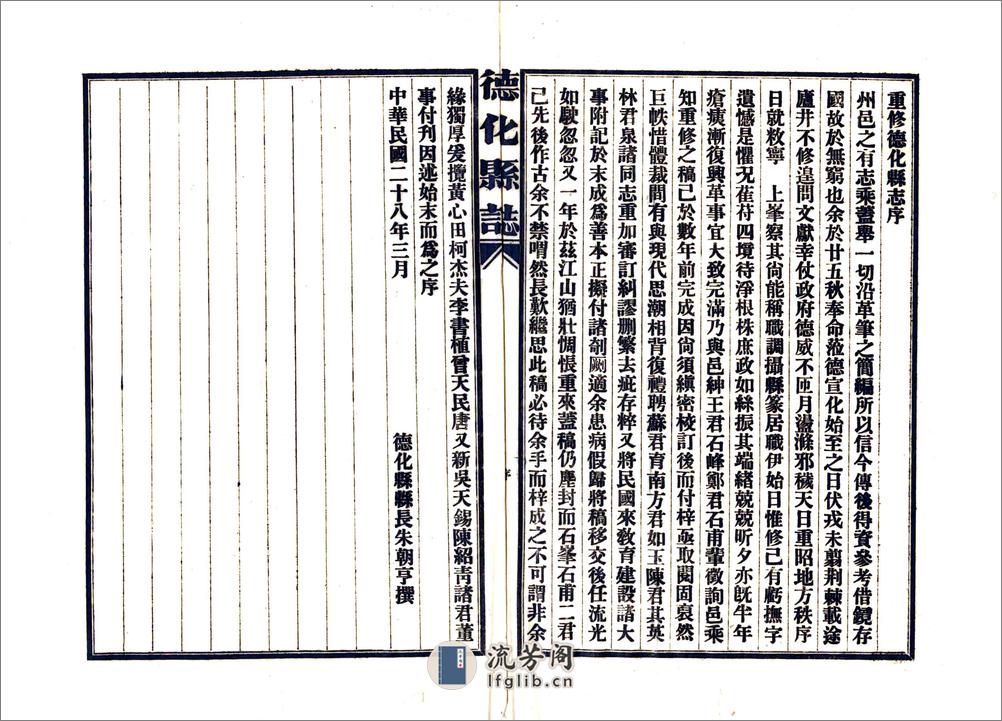 重修德化縣志序
州邑之有志乘蓋舉一切沿革筆之簡編所以信今傳後得資參考借鏡存
國故於無窮也余於廿五秋奉命蒞德宣化始至之日伏戎未翦荆棘載途
廬井不修遑問文獻幸仗政府德威不匝月盪滌邪穢天日重昭地方秩序
日就敉寧　上峯察其尙能稱職調攝縣篆居職伊始日惟修己有虧撫字
遺憾是懼況萑苻四境待淨根株庶政如絲振其端緒兢兢昕夕亦旣半年
瘡痍漸復興革事宜大致完滿乃與邑紳王君石峰鄭君石甫輩徵詢邑乘
知重修之稿已於數年前完成因尙須縝密校訂後而付梓亟取閱固裒然
巨帙惜體裁間有與現代思潮相背復禮聘蘇君育南方君如玉陳君其英
林君泉諸同志重加審訂糾謬删繁去疵存粹又將民國來敎育建設諸大
事附記於末成爲善本正擬付諸剞劂適余患病假歸將稿移交後任流光
如駛忽忽又一年於茲江山猶壯惆悵重來蓋稿仍塵封而石峯石甫二君
已先後作古余不禁喟然長歎繼思此稿必待余手而梓成之不可謂非余
德化縣誌
序
緣獨厚爰攬黃心田柯杰夫李書植曾天民唐又新吳天錫陳紹靑諸君董
事付刊因述始末而爲之序
中華民國二十八年三月
德化縣縣長朱朝亨撰
流芳阁
lfglib.cn